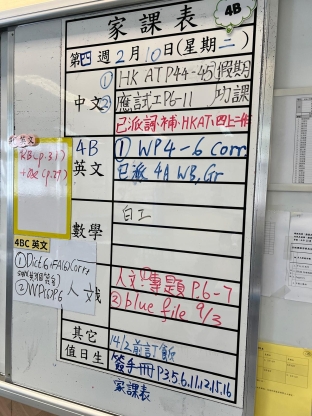 家課表
4B
第四週2月10日(星期二)
中文
① HK AT P44-45 假期
② 應試工P6-11 功課
已派詞、補、HKAT、四上作
4B
英文
① WP4-6 Corr
已派 4A WB, Gr
英文
4BC 英文
① Dict 6
② WP
數學
自工
人文
人文:專題 P.6-7
② blue file 9/3
其它
14/2前訂飯
值日生
簽手冊P3.5.6.11.12.15.16
家課表